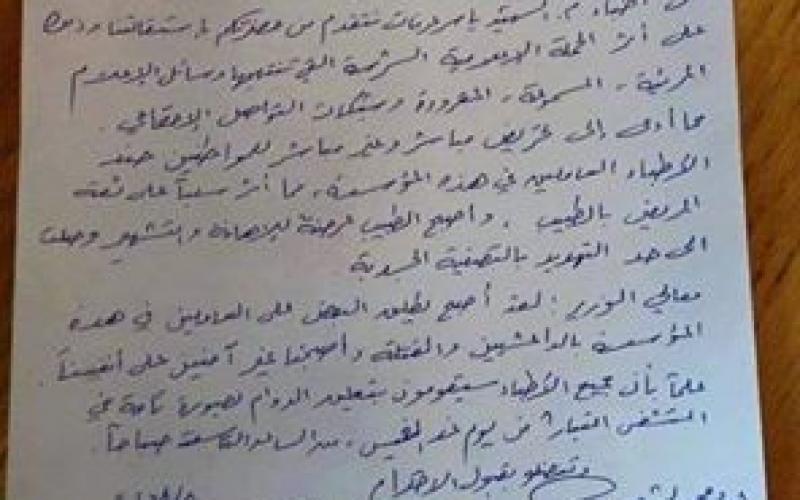 أطباء م. الشهيد ياسر عرفات نتقدم من حضرتكم باستقالتنا
على أثر الحملة الإعلامية الشرسة التي تشنها وسائل الإعلام
المرئية، المسموعة، المقروءة وشبكات التواصل الاجتماعي.
مما أدى إلى تحريض مباشر وغير مباشر للمواطنين ضد
الأطباء العاملين في هذه المؤسسة، مما أثر سلباً على ثقة
المريض بالطبيب. وأصبح الطبيب عرضة للإهانة والتشهير وصلت
الى حد التهديد بالتصفية الجسدية
معالي الوزير: لقد أصبح يطلق البعض على العاملين في هذه
المؤسسة بالداعشيين والقتلة وأصبحنا غير آمنين على أنفسنا.
علماً بأن جميع الأطباء سيقومون بتعليق الدوام بصورة تامة في
المستشفى اعتباراً من يوم غد الخميس، من الساعة التاسعة صباحاً.
وتفضلو بقبول الاحترام